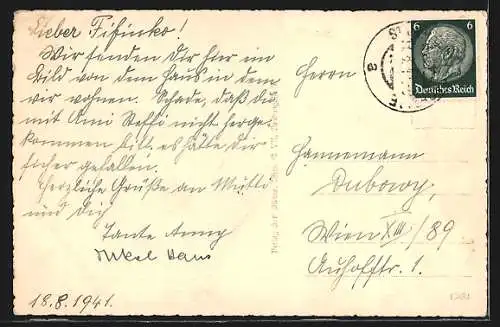 Lieber Fifinko!
Wir senden Dir hier im
Bild von dem Haus in dem
wir wohnen. Schade, daß du
mit Omi Steffi nicht herge-
kommen bist es hätte Dir
sicher gefallen.
Herzliche Grüße an Mutti
und Dich
Tante Anny
Onkel Hans
18.8.1941.
Herrn
Hannemann
Dubowy,
Wien XIII/89
Auhofstr. 1.
6 6
Deutsches Reich